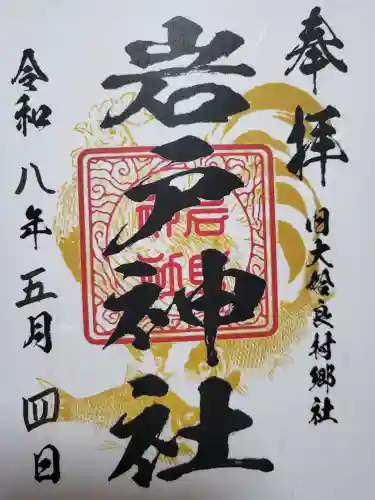 奉拝
旧大姶良村郷社
岩戸神社
令和八年五月四日